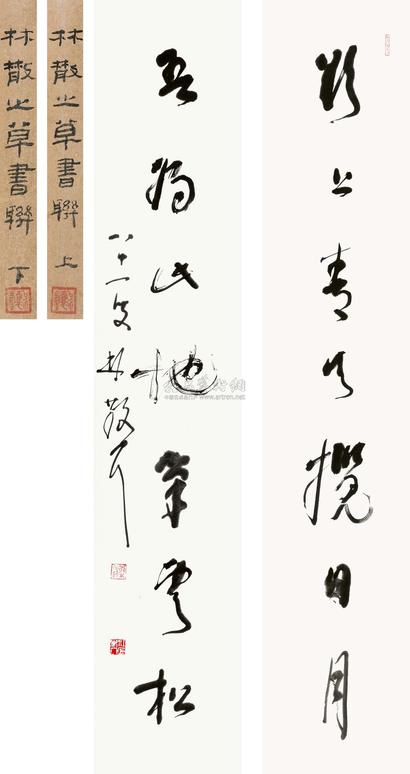 欲上青天攬日月
吾將此地巢雲松
八十一叟林散耳
林散之草書聯 上
林散之草書聯 下
www.artron.net